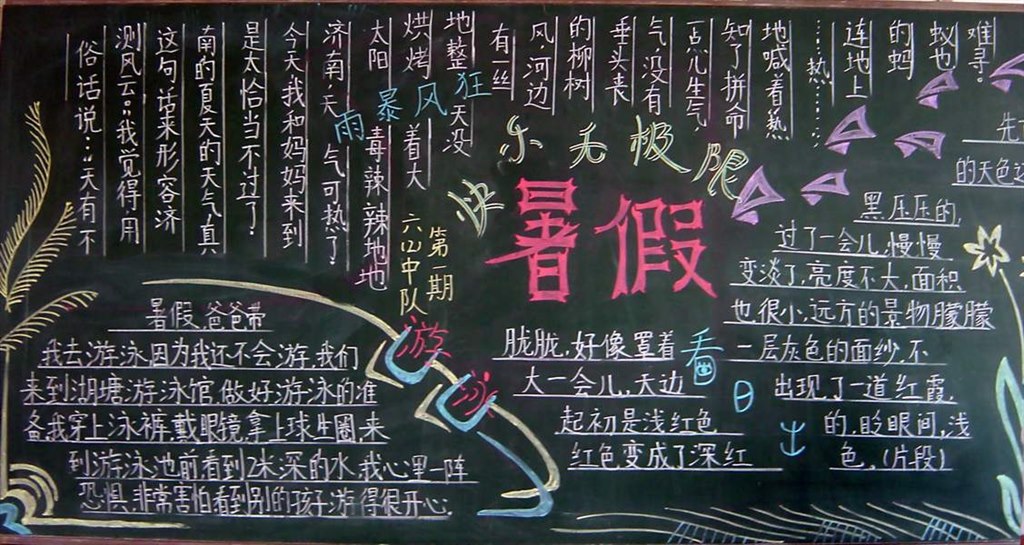 狂风暴雨
俗话说:“天有不
测风云。”我觉得,用
这句话来形容济
南的夏天的天气真
是太恰当不过了。
今天,我和妈妈来到
济南,天气可热了。
太阳毒辣辣地地
烘烤着大
地整天没
有一丝
风,河边
的柳树
垂头丧
气,没有
点儿生气,
知了拼命
地喊着热
……热……
连地上
的蚂
蚁也
难寻。
快乐无极限
暑假
第一期
六(2)中队
游泳
暑假,爸爸带
我去游泳因为我还不会游,我们
来到湖塘游泳馆,做好游泳的准
备,我穿上泳裤,戴眼镜,拿上球生圈,来
到游泳池前看到2米深的水,我心里一阵
恐惧,非常害怕看到别的孩子游得很开心,
看日
先
的天色
黑压压的,
过了一会儿,慢慢
变淡了,亮度不大,面积
也很小,远方的景物朦朦
胧胧,好像罩着一层灰色的面纱,不
大一会儿,天边出现了一道红霞,
起初是浅红色的,眨眼间,浅
红色变成了深红色。(片段)